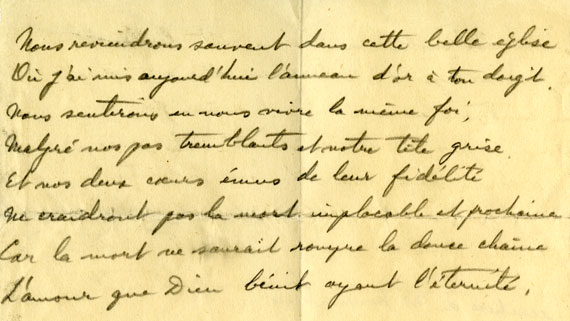 Nous reviendrons souvent dans cette belle église
Où j'ai mis aujourd'hui l'anneau d'or à ton doigt.
Nous sentirons en nous vivre la même foi,
Malgré nos pas tremblants et notre tête grise.
Et nos deux cœurs émus de leur fidélité
Ne craidront pas la mort implacable et prochaine
Car la mort ne saurait rompre la douce chaîne
L'amour que Dieu bénit ayant l'éternité.